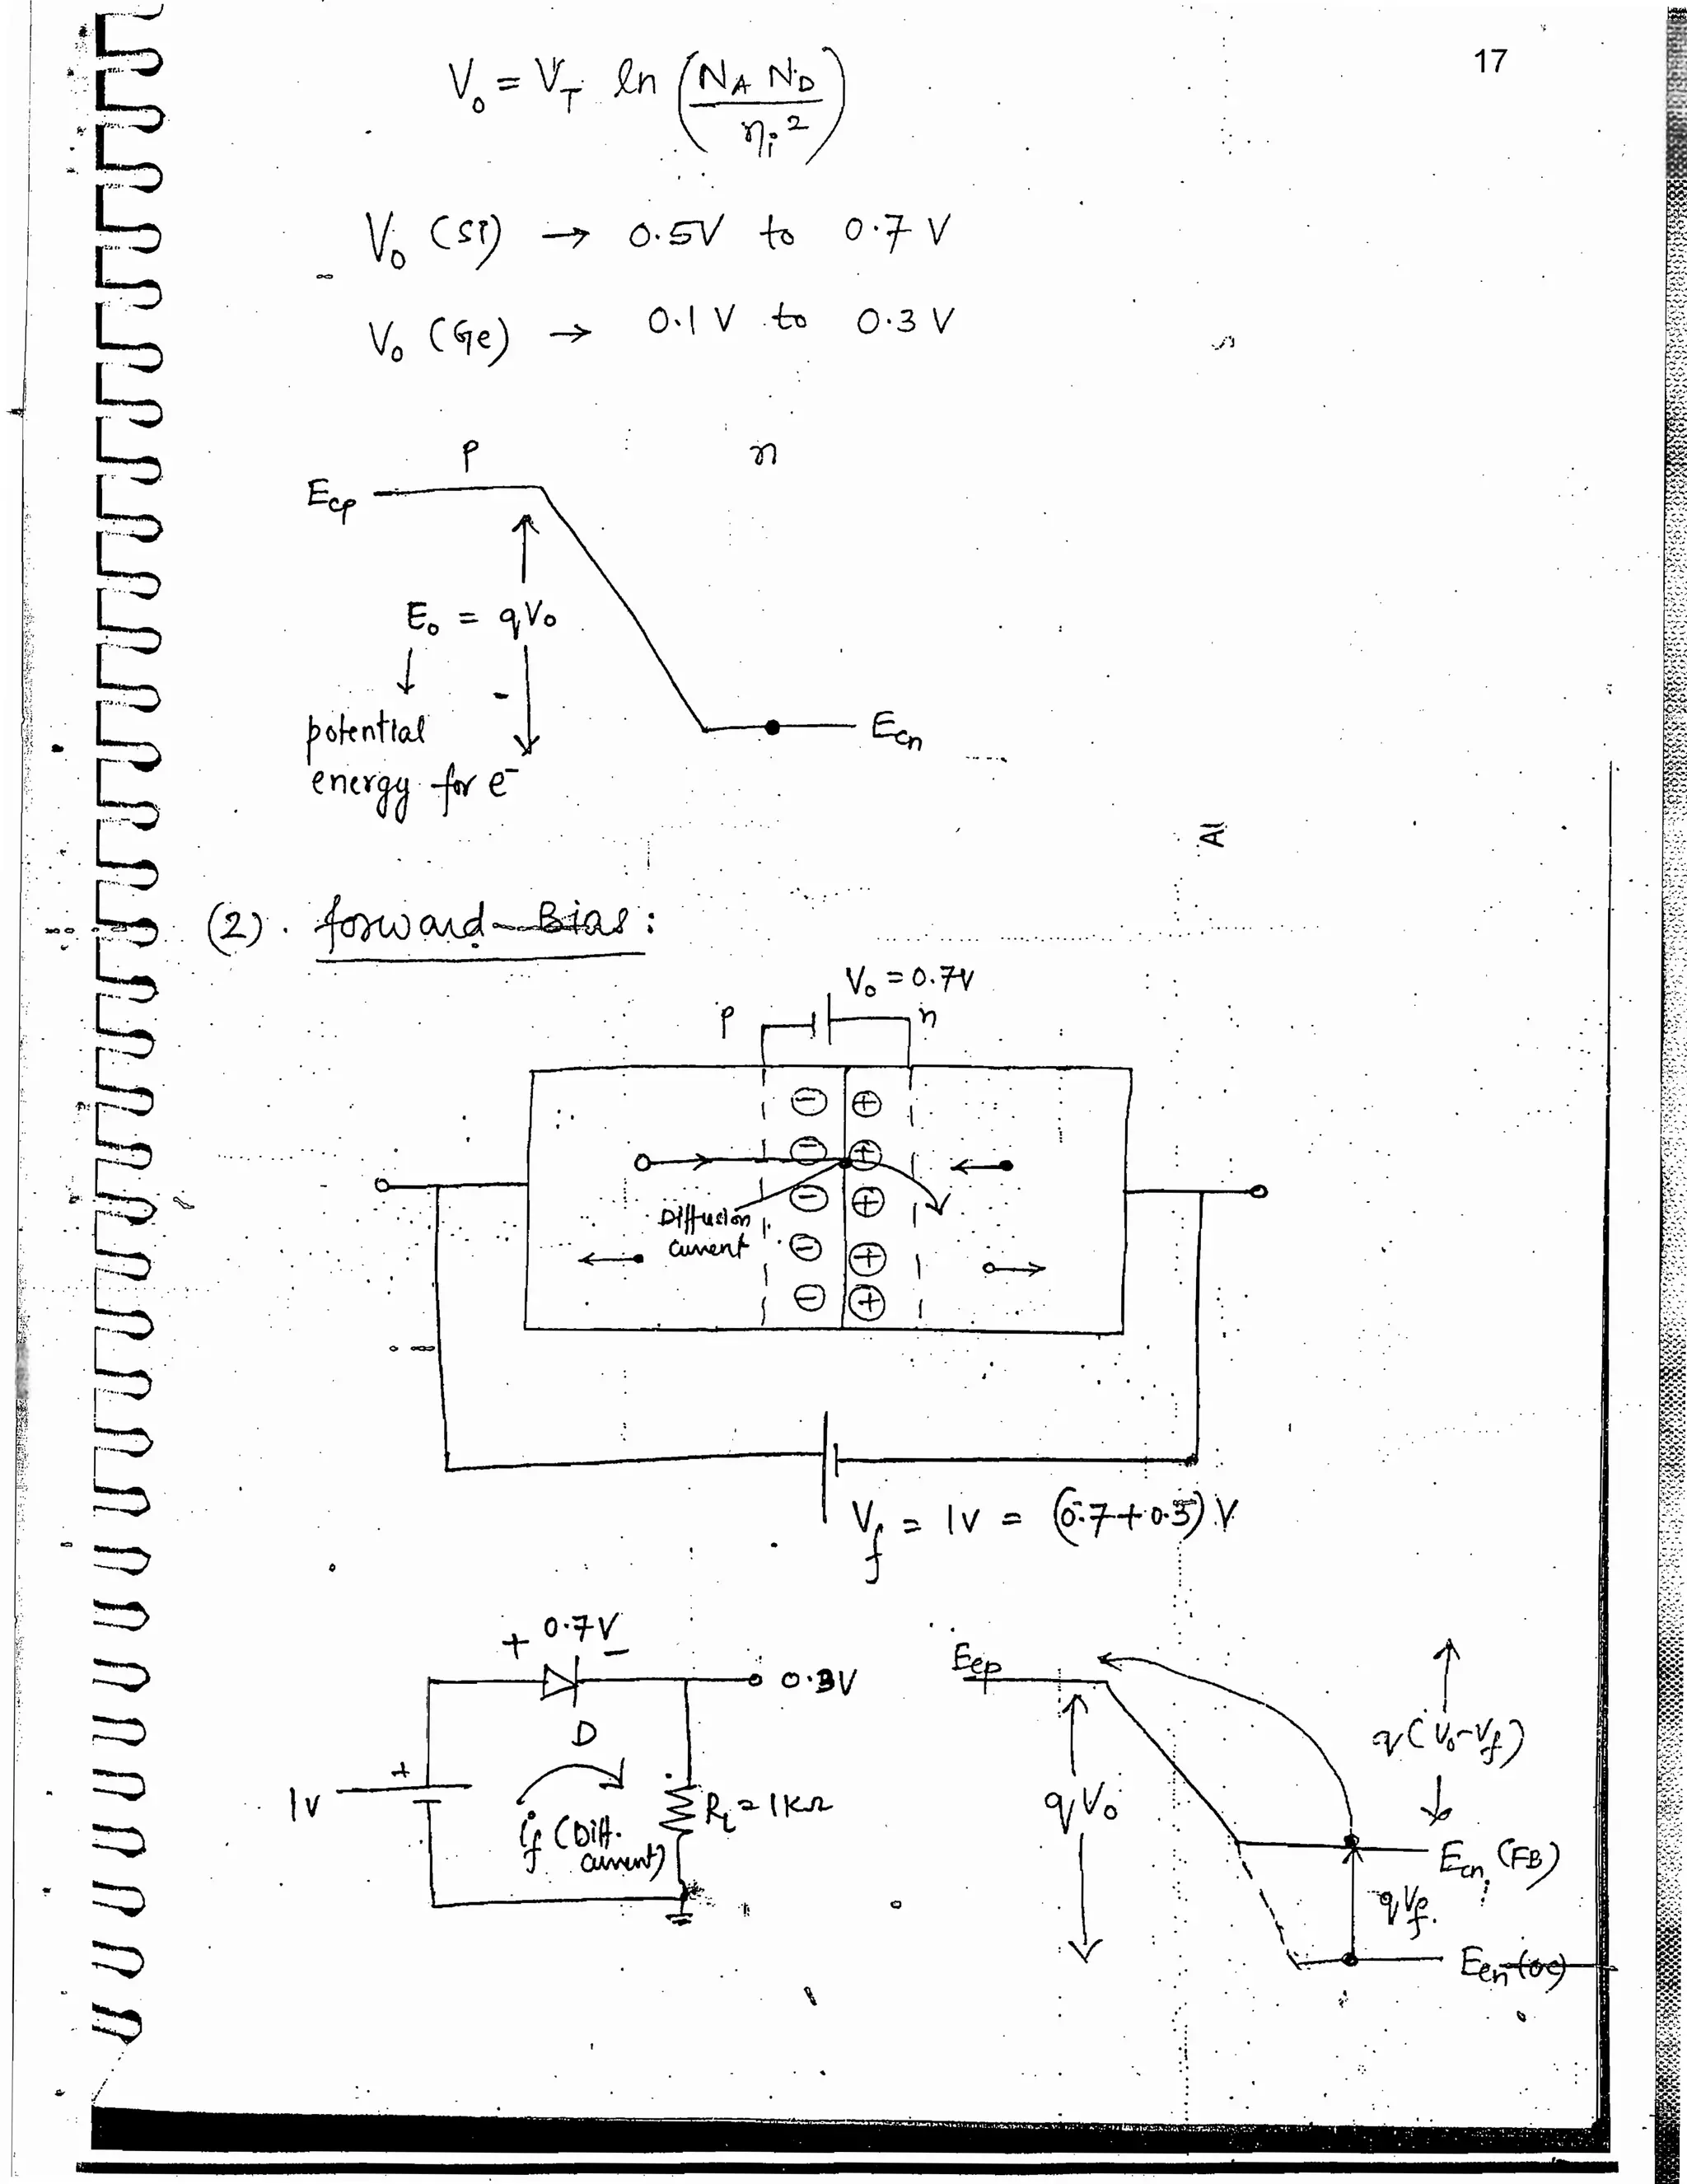 17
V₀ = V_T ln (N_A N_D / n_i²)
V₀ (Si) → 0.5V to 0.7 V
V₀ (Ge) → 0.1 V to 0.3 V
P n
E_cp
E₀ = qV₀
↓
potential
energy for e⁻
E_cn
(2). forward Bias:
V₀ = 0.7V
P n
⊖ ⊕
⊖ ⊕
⊖ ⊕
Diffusion
current
⊖ ⊕
⊖ ⊕
V_f = 1V = (0.7+0.3) V
+ 0.7V −
0.3V
D
+
1V
i_f (Diff.
current)
R_L = 1KΩ
E_cp
q(V₀-V_f)
qV₀
E_cn (FB)
qV_f.
E_cn (oc)